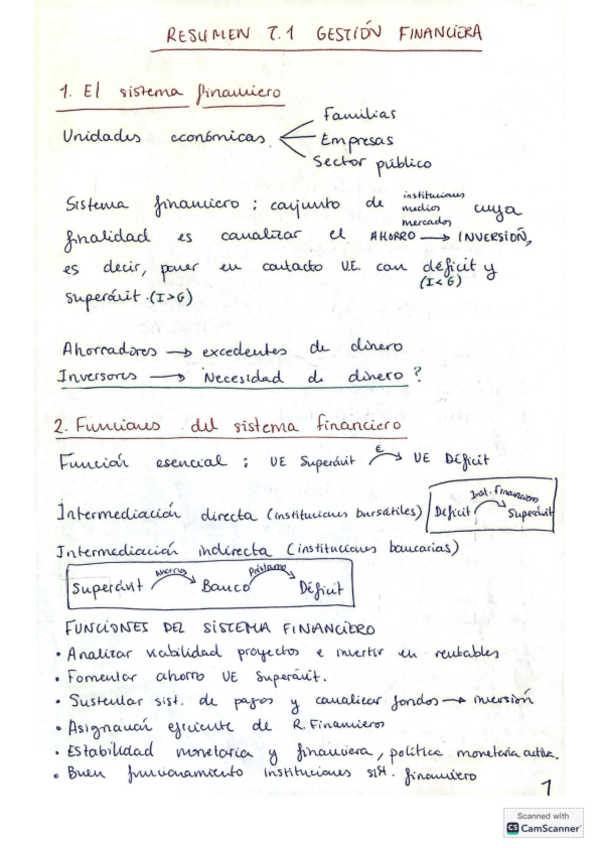 RESUMEN T.1 GESTIÓN FINANCIERA
1. El sistema financiero
Familias
Unidades económicas
Empresas
Sector público
Sistema financiero : conjunto de instituciones medios mercados cuya
finalidad es canalizar el AHORRO → INVERSIÓN,
es decir, poner en contacto U.E. con déficit y
(I<G)
superávit. (I>G)
Ahorradores → excedentes de dinero
Inversores → Necesidad de dinero ?
2. Funciones del sistema financiero
Función esencial : UE Superávit € → UE Déficit
Inst. Financiero
Intermediación directa (instituciones bursátiles) Déficit → Superávit
Intermediación indirecta (instituciones bancarias)
Ahorros Préstamo
Superávit → Banco → Déficit
FUNCIONES DEL SISTEMA FINANCIERO
• Analizar viabilidad proyectos e invertir en rentables
• Fomentar ahorro UE Superávit.
• Sustentar sist. de pagos y canalizar fondos → inversión
• Asignación eficiente de R. Financieros
• Estabilidad monetaria y financiera, política monetaria activa.
• Buen funcionamiento instituciones sist. financiero
1
Scanned with
CS CamScanner